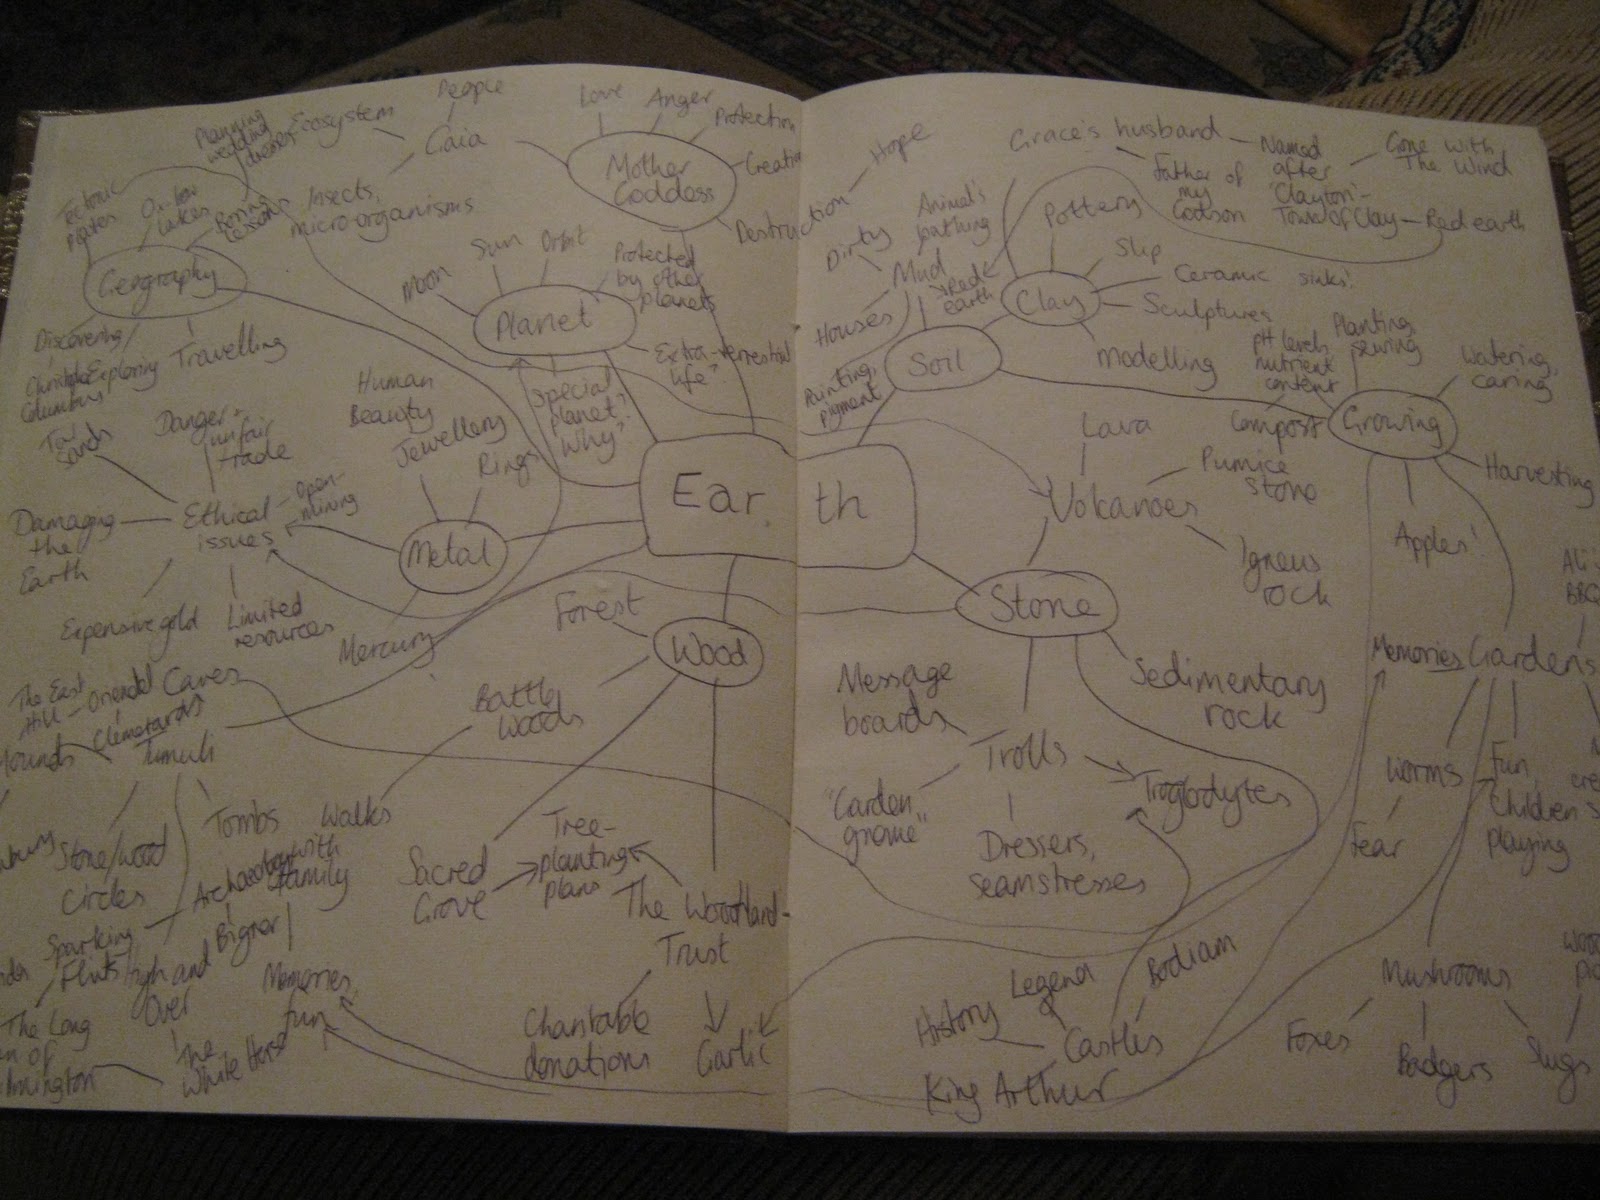 People
Ecosystem
Gaia
Planning
wedding
dresses
Insects,
micro-organisms
Tectonic
plates
Ox-bow
lakes
Boring
lessons
Geography
Discovering
Exploring
Travelling
Christopher
Columbus
Love
Anger
Protection
Mother
Goddess
Creation
Destruction
Hope
Moon
Sun
Orbit
Protected
by other
planets
Planet
Extra-terrestrial
life?
Special
planet?
Why?
Human
Beauty
Jewellery
Rings
Metal
Mercury
Tar
Sands
Danger +
unfair
trade
Open-
mining
Ethical
issues
Damaging
the
Earth
Expensive gold
Limited
resources
Ear
th
Forest
Wood
Battle
Woods
Walks
with
family
Memories,
fun
Sacred
Grove
Tree-
planting
plans
The Woodland
Trust
Charitable
donations
Garlic
The East
Hill
Caves
Mounds
Tumuli
Tombs
Stone/wood
Circles
Archaeology
Bignor
Sparking
Flints
High and
Over
The
White Horse
The Long
Grace's husband
Father of
my
Godson
Named
after
'Clayton'-
Town of Clay
Gone with
The Wind
Red earth
Animal's
bathing
Dirty
Mud
Red
earth
Houses
Painting,
pigment
Soil
Pottery
Slip
Ceramic sinks!
Sculptures
Modelling
Clay
pH levels
nutrient
content
Planting,
sewing
Watering,
caring
Compost
Growing
Harvesting
Apples!
Lava
Volcanoes
Pumice
stone
Igneus
rock
Stone
Sedimentary
rock
Message
boards
Trolls
Troglodytes
"Garden
gnome"
Dressers,
seamstresses
Memories
Gardens
BBQ
Worms
Fear
Fun,
Children
playing
Mushrooms
Foxes
Badgers
Slugs
Legend
Bodiam
History
Castles
King Arthur